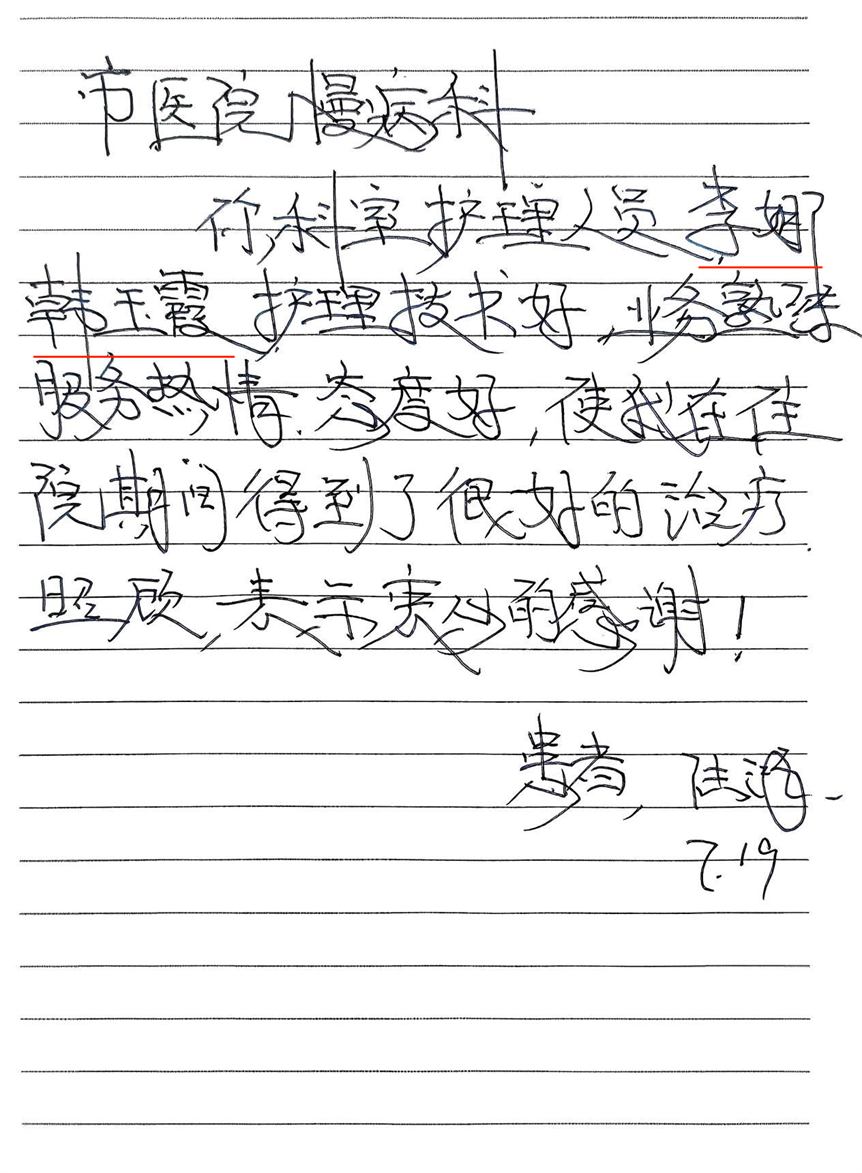 市医院慢病科
你科室护理人员李娜
韩玉霞护理技术好,业务熟练
服务热情.态度好,使我在住
院期间得到了很好的治疗.
照顾,表示衷心的感谢!
患者,
7.19